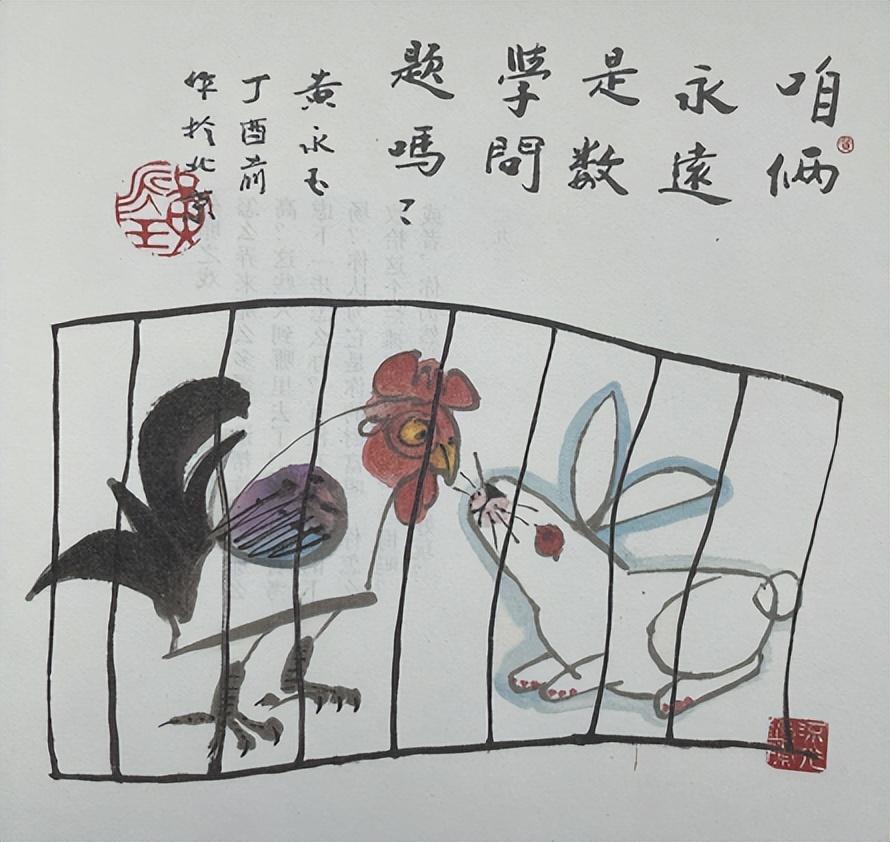 咱俩
永遠
是数
學問
題嗎？
黄永玉
丁酉前
作於北京